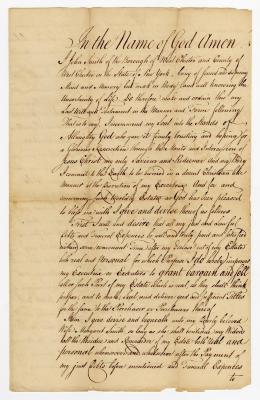 In the Name of God Amen
I John Smith of the Borough of West Chester and County of
West Chester in the State of New York, being of sound and
Mind and Memory but weak in Body and well knowing the
Uncertainty of Life Do therefore make and ordain this my
Last Will and Testament in the Manner and Form following
That is to say I recommend my Soul into the Hands of
Almighty God who gave it firmly trusting and hoping for
a Glorious Resurrection through the Merits and Intercession of
Jesus Christ my only Saviour and Redeemer and my Body
I commit to the Earth to be interred in a decent Christian like
Manner at the Discretion of my Executors And for and
concerning such Worldly Estate as God has been pleased
to bless me with I give and devise thereof as follows
First I will and direct that all my just Debts and
and Funeral Expences be well and truly paid
certain some convenient Time after my Decease out of my Estate
both real and Personal for which Purpose I do hereby impower
my Executrix or Executors to grant bargain and sell
such Part of my Estate
proper, and to make, seal and deliver good and sufficient Titles
for the same to the Purchaser or Purchasers thereof
Item I give devise and bequeath unto my dearly beloved
Wife Margaret Smith as long as she shall continue my Widow
all the Residue and Remainder of my Estate both real and
personal whensoever and wheresoever after the Payment of
my just Debts before mentioned and Funeral Expences
to